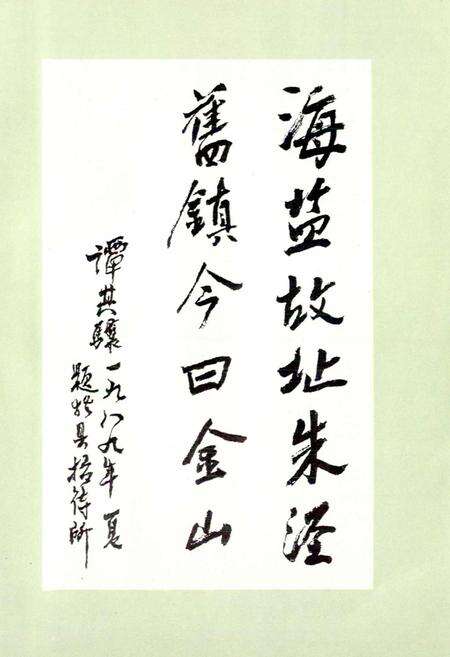 海盐故址朱泾
舊鎮今日金山
譚其驤一九八九年夏
題於县招待所